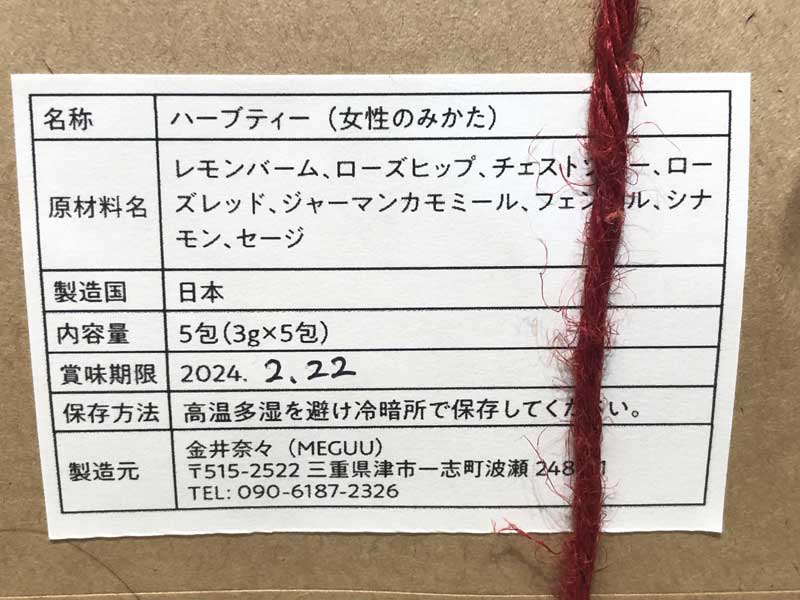 名称 ハーブティー（女性のみかた）
原材料名 レモンバーム、ローズヒップ、チェストツリー、ロー
ズレッド、ジャーマンカモミール、フェンネル、シナ
モン、セージ
製造国 日本
内容量 5包（3g×5包）
賞味期限 2024. 2.22
保存方法 高温多湿を避け冷暗所で保存してください。
製造元 金井奈々（MEGUU）
〒515-2522 三重県津市一志町波瀬
TEL: 090-6187-2326